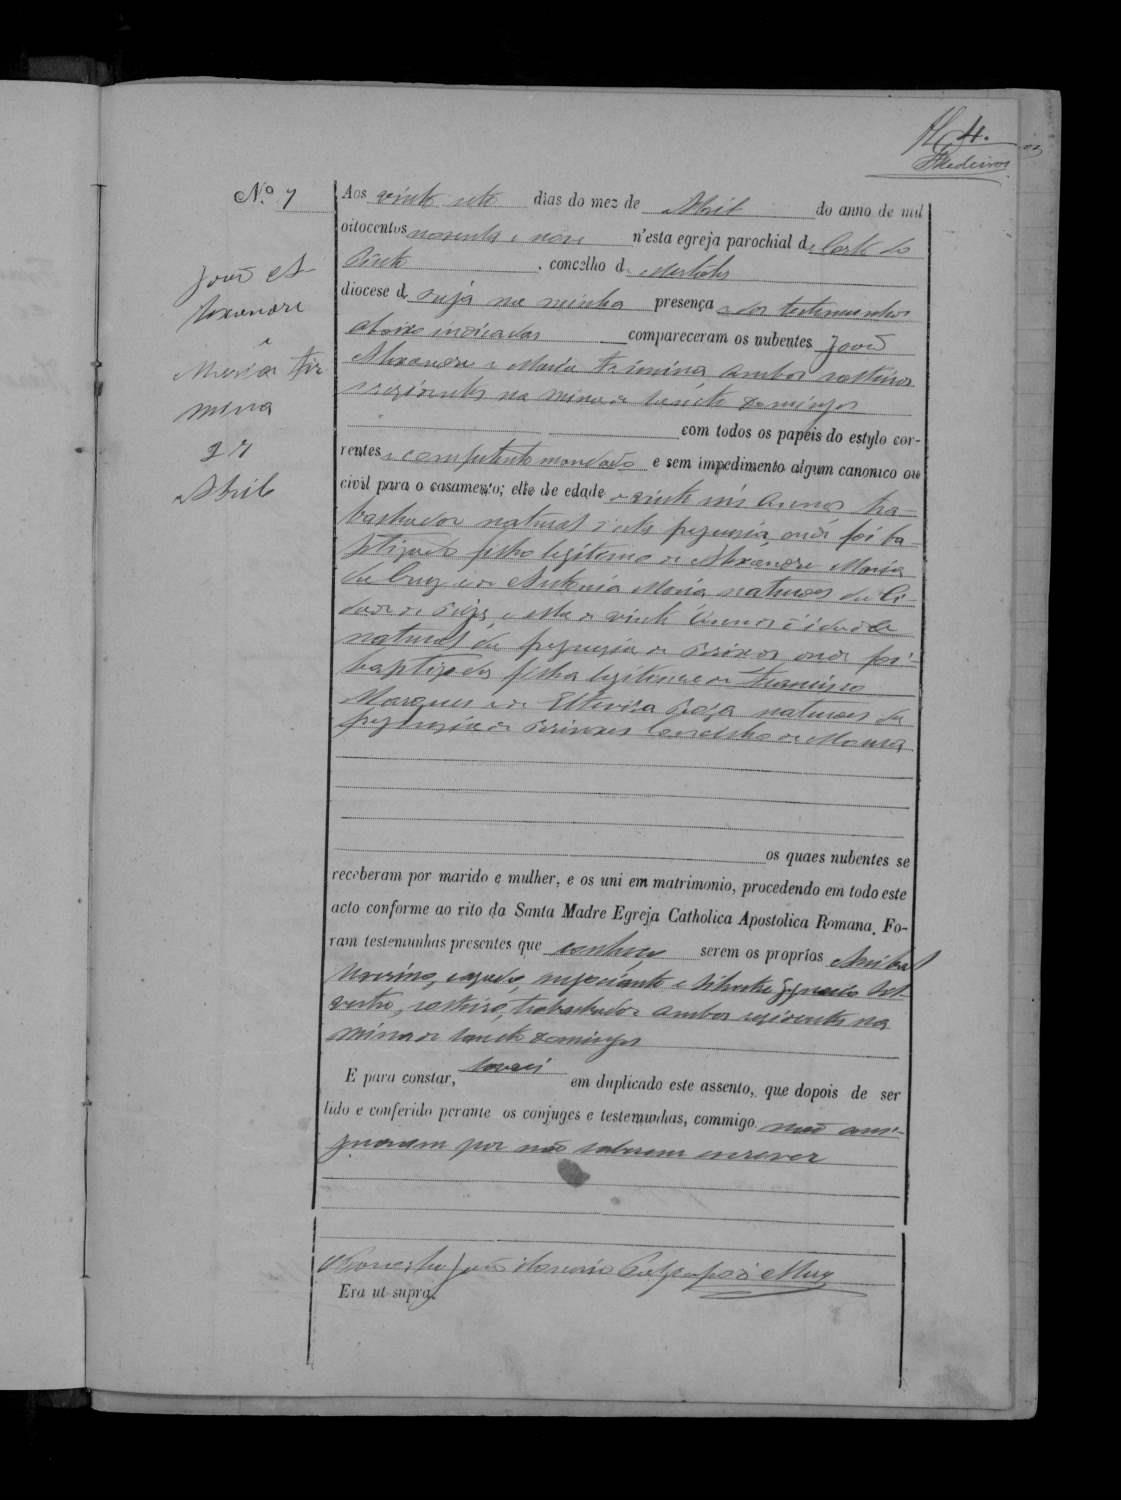 4.
Medeiros
N.o 7
João A
lexandre
Maria Fir
mina
27
Abril
Aos vinte sete dias do mez de Abril do anno de mil
oitocentos noventa e nove n'esta egreja parochial de Corte do
Pinto, concelho de Mertola
diocese de Beja na minha presença e das testemunhas
abaixo indicadas compareceram os nubentes João
Alexandre e Maria Firmina, ambos solteiros
residentes na mina de Sancto Domingos
com todos os papeis do estylo cor-
rentes e competente mandado e sem impedimento algum canonico ou
civil para o casamento; elle de edade de vinte seis annos tra-
balhador natural d'esta freguesia, onde foi ba-
ptizado filho legitimo de Alexandre Maria
da Cruz e de Antonia Maria naturaes da Ci-
dade de Beja, e ella de vinte annos d'idade
natural da freguesia de onde foi
baptizada filha legitima de Francisco
Marques e de Rosa naturaes da
freguesia de Concelho de Moura
os quaes nubentes se
receberam por marido e mulher, e os uni em matrimonio, procedendo em todo este
acto conforme ao rito da Santa Madre Egreja Catholica Apostolica Romana. Fo-
ram testemunhas presentes que conheço serem os proprios Anibal
casado, negociante e Silvestre Ignacio Sil-
vestre, solteiro, trabalhador ambos residentes na
mina de Sancto Domingos
E para constar, lavrei em duplicado este assento, que dopois de ser
lido e conferido perante os conjuges e testemunhas, commigo não assi-
gnaram por não saberem escrever
O Parocho João
Era ut supra.